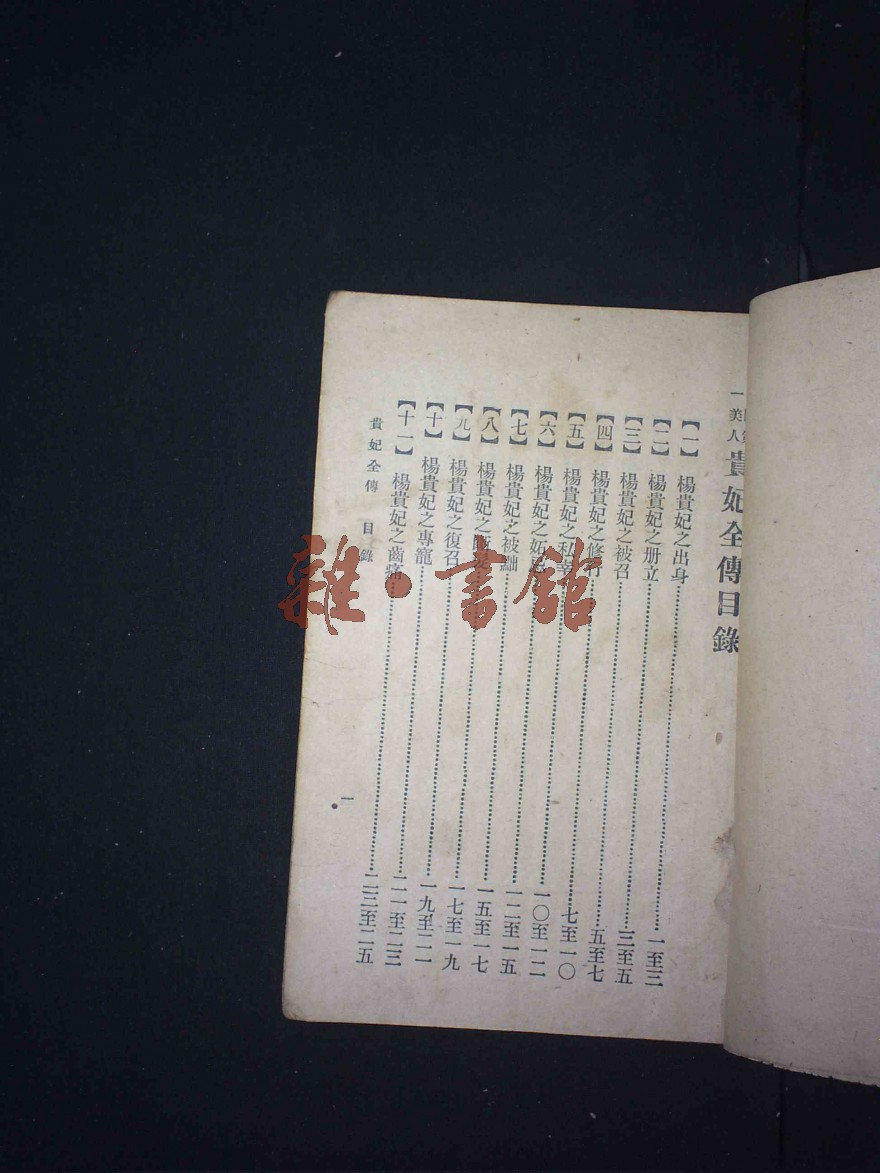 一美人
貴妃全傳目錄
【一】楊貴妃之出身……一至三
【二】楊貴妃之册立……三至五
【三】楊貴妃之被召……五至七
【四】楊貴妃之修……七至一〇
【五】楊貴妃之私……一〇至一二
【六】楊貴妃之妬……一二至一五
【七】楊貴妃之被黜……一五至一七
【八】楊貴妃之髮……一七至一九
【九】楊貴妃之復召……一九至二一
【十】楊貴妃之專寵……二一至二三
【十一】楊貴妃之齒痛……二三至二五
貴妃全傳 目錄
一
雜·書館